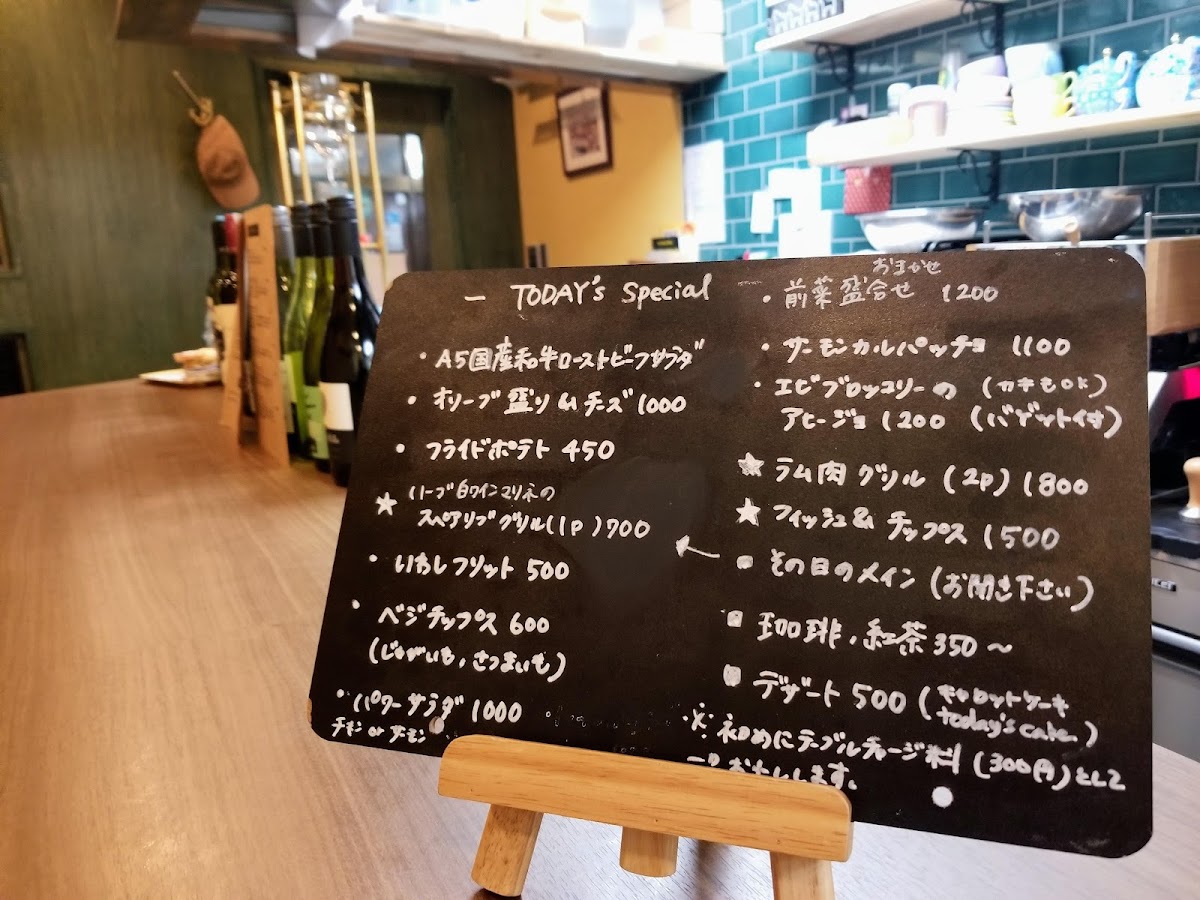 — TODAY's Special
・A5国産和牛ローストビーフサラダ
・オリーブ盛り&チーズ1000
・フライドポテト 450
★ハーブ白ワインマリネの
スペアリブグリル(1P)700
・いわしフリット 500
・ベジチップス 600
(じゃがいも,さつまいも)
・パワーサラダ 1000
チキン or サーモン
おまかせ
・前菜盛合せ 1200
・サーモンカルパッチョ 1100
・エビブロッコリーの (カキもOK)
アヒージョ 1200 (バゲット付)
★ラム肉グリル (2P) 1800
★フィッシュ&チップス 1500
□ その日のメイン (お聞き下さい)
□ 珈琲,紅茶 350〜
□ デザート 500 (キャロットケーキ
today's cake)
※初めにテーブルチャージ料(300円)として
おだしします。